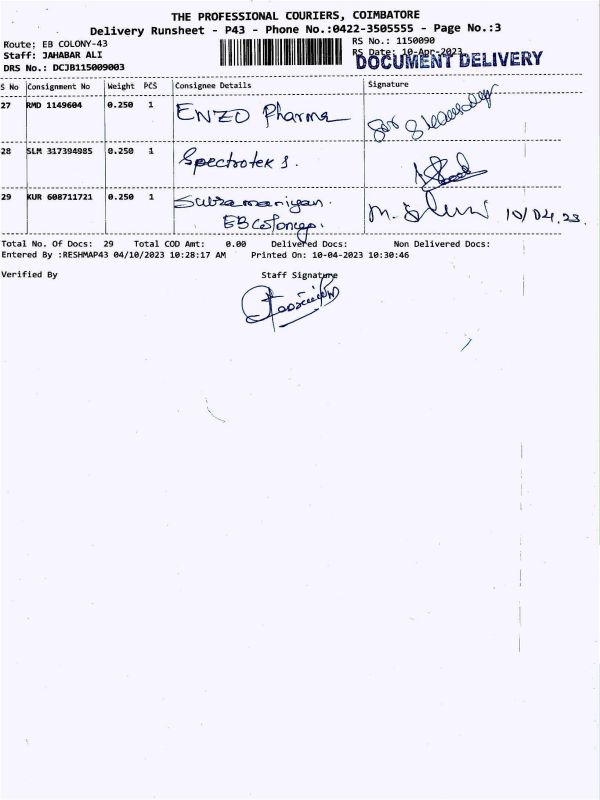 THE PROFESSIONAL COURIERS, COIMBATORE
Delivery Runsheet - P43 - Phone No.:0422-3505555 - Page No.:3
Route: EB COLONY-43
RS No.: 1150090
Staff: JAHABAR ALI
RS Date: 10-Apr-2023
DOCUMENT DELIVERY
DRS No.: DCJB115009003
S No Consignment No Weight PCS Consignee Details Signature
27 RMD 1149604 0.250 1 ENZO Pharma
28 SLM 317394985 0.250 1 Spectrotek S.
29 KUR 608711721 0.250 1 Subramaniyan. 10/04.23.
EB Colony.
Total No. Of Docs: 29 Total COD Amt: 0.00 Delivered Docs: Non Delivered Docs:
Entered By :RESHMAP43 04/10/2023 10:28:17 AM Printed On: 10-04-2023 10:30:46
Verified By Staff Signature